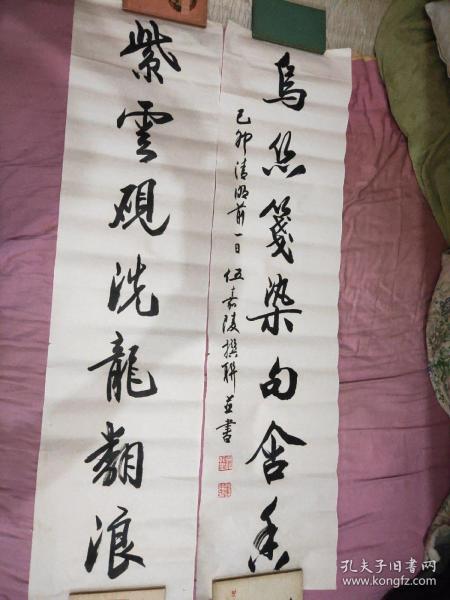 烏丝箋染句含香
己卯清明前一日 伍嘉陵撰联並書
紫雲硯洗龍翻浪
孔夫子旧书网
www.kongfz.com